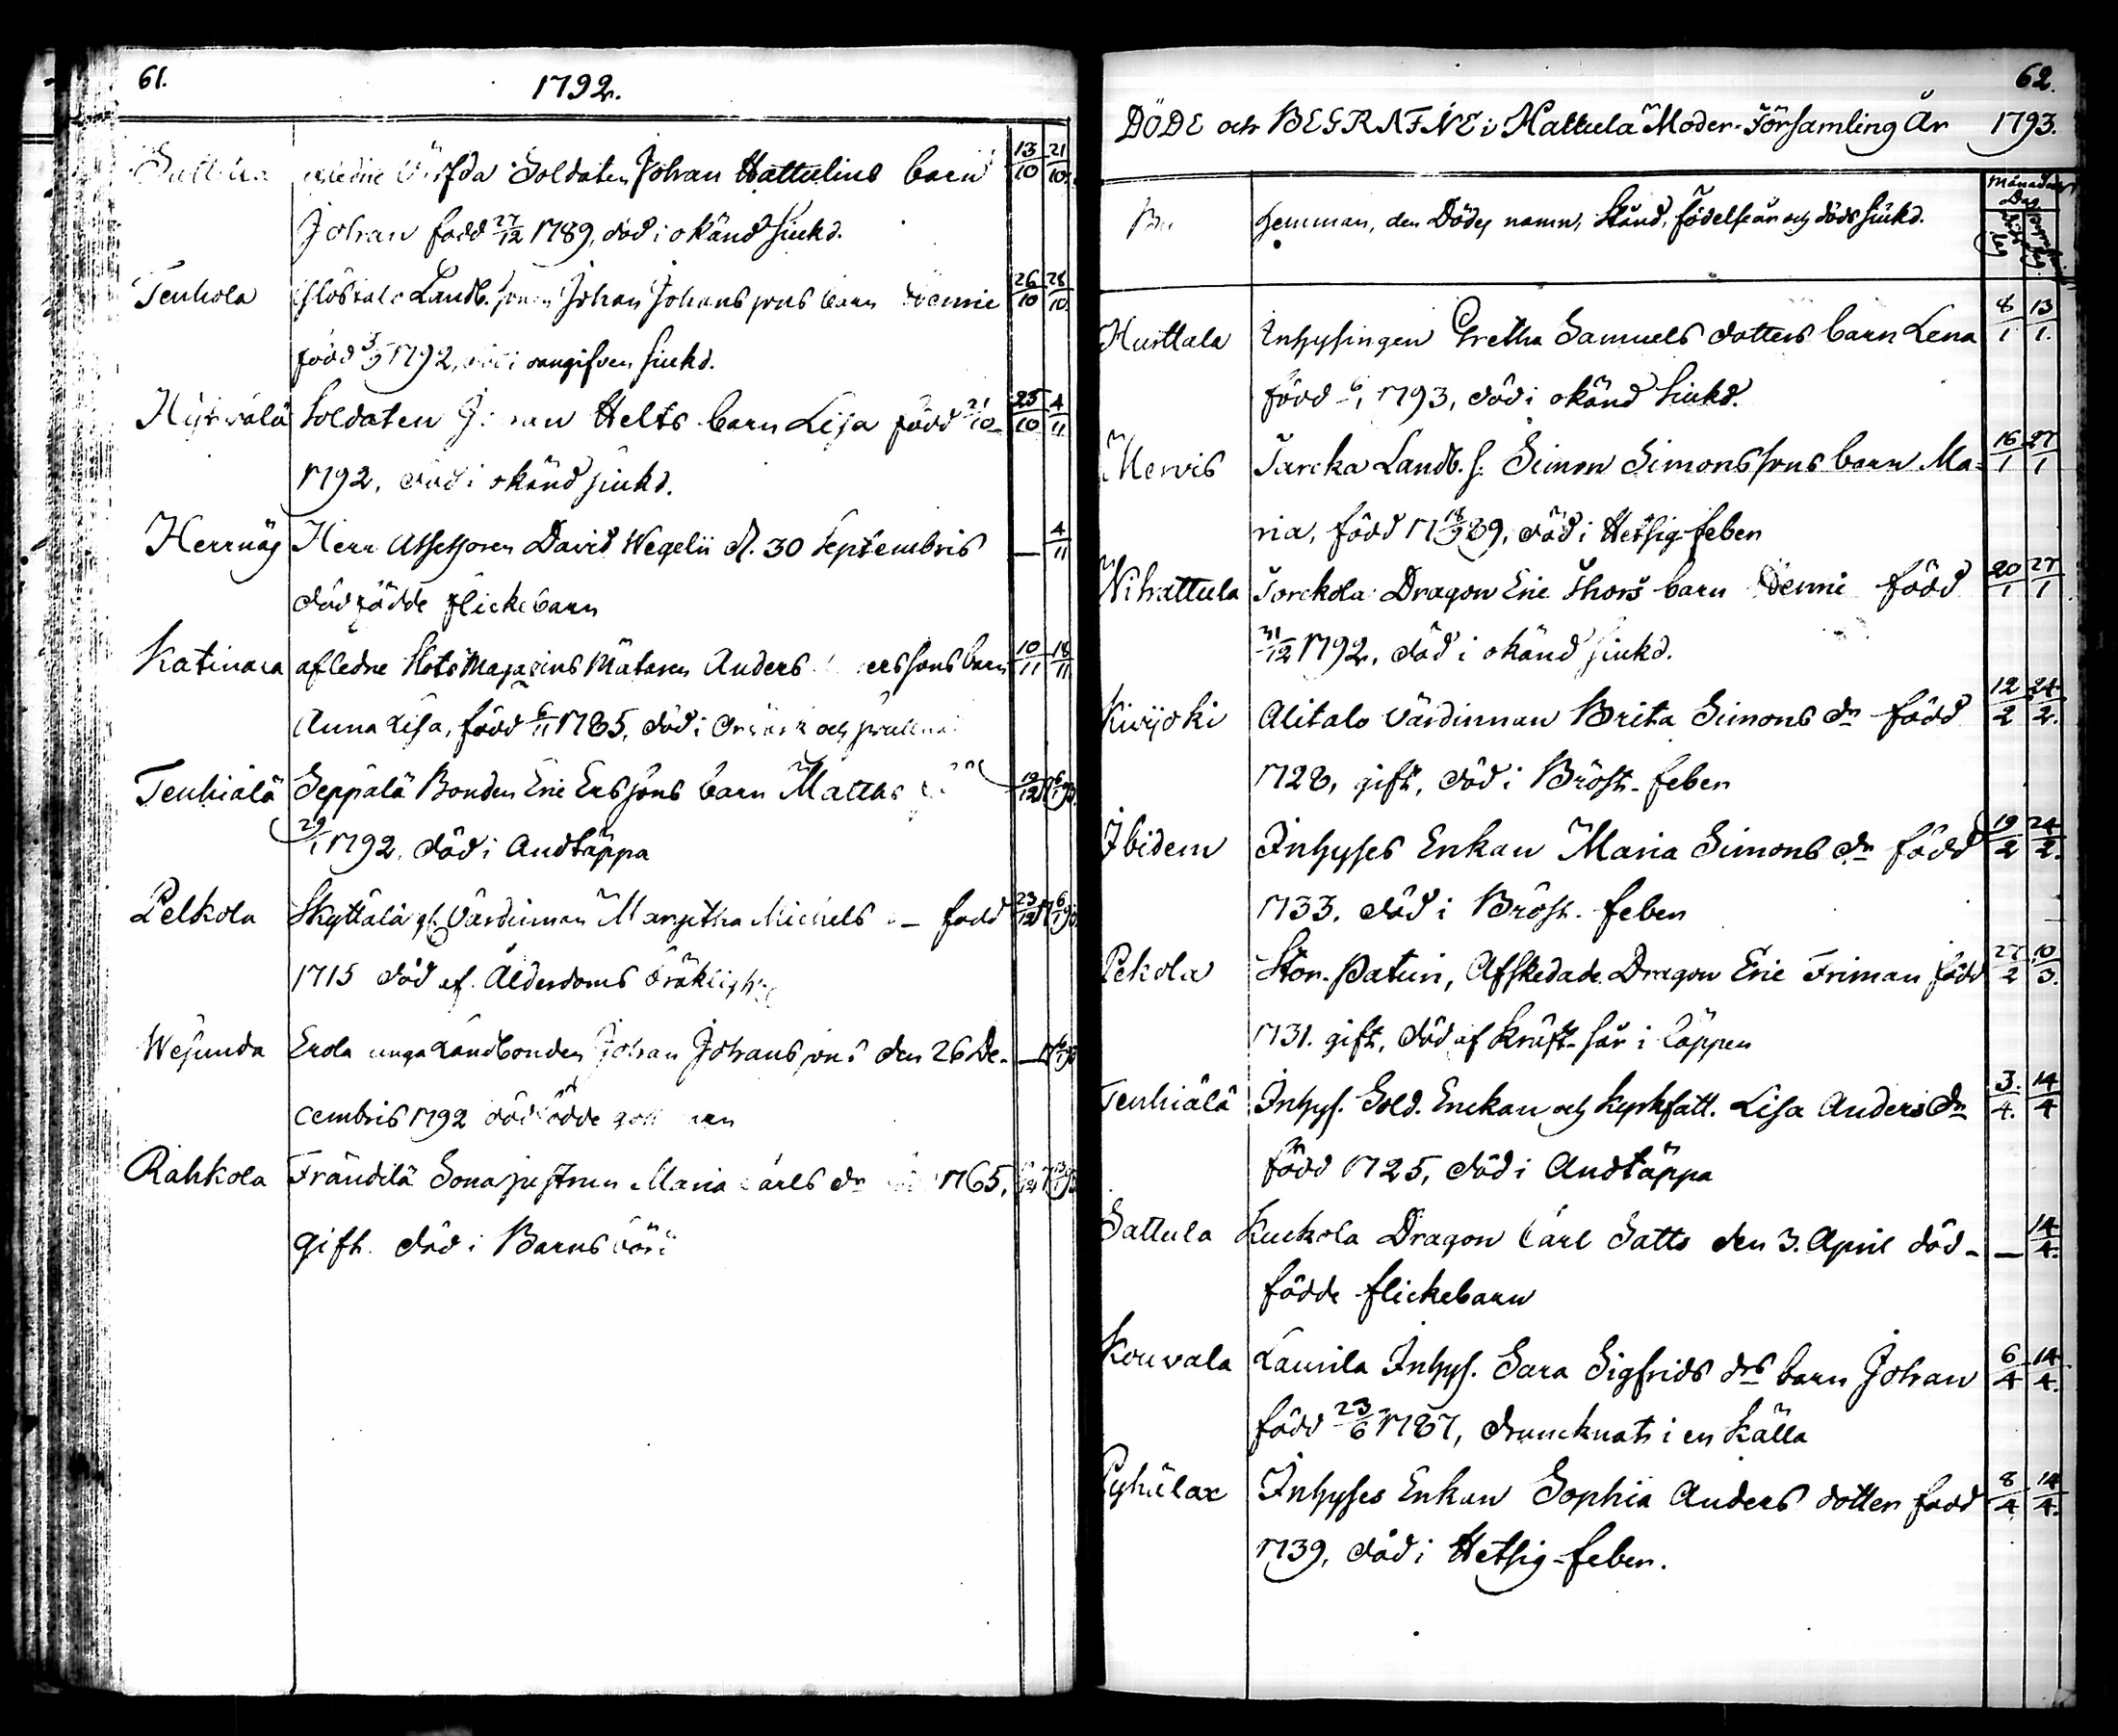 61.
1792.
13/10 21/10.
Soldaten Johan Hattulins barn
Johan född 27/12 1789, död i okänd siukd.
Tenhola Landb. Johan Johans sons barn 26/10 28/10.
född 1792, i oangifven siukd.
Soldaten Helts barn Lisa född 21/10 25/10 4/11
1792, död i okänd siukd.
Herrnäs Herr Assessoren David Wegelii d. 30 Septembris — 4/11
dödfödde flickebarn
Katinara afledne Slots Magazins Mätaren Anders barn 10/11 18/11
Anna Lisa, född 6/11 1785, död i och
Tenhiälä Seppälä Bonden Eric Ers sons barn Matths 12/12
29/1 1792, död i Andtäppa
Pelkola Skyttälä gl. Värdinnan Margetha Michels född 23/12
1715 död af Ålderdoms bräklighet
Wesunda Erola unga Landbonden Johan Johans sons den 26 De- —
cembris 1792 dödfödde
Rahkola Frändilä Maria Carls dr 1765,
gift. död i Barnsbörd
62.
DÖDE och BEGRAFNE i Hattula Moder-Församling År 1793.
Hemman, den Dödes namn, Stånd, födelseår och döds siukd.
Månads
Dag
Hurttala Inhysingen Gretha Samuels dotters barn Lena 8/1 13/1.
född 6/1 1793, död i okänd siukd.
Mervis Jarcka Landb. s. Simon Simons sons barn Ma- 16/1 27/1
ria, född 17 18/9 89, död i Hetsig-feber
Nihattula Torckola Dragon Eric Thors barn född 20/1 27/1
31/12 1792, död i okänd siukd.
Kivijoki Alitalo Värdinnan Brita Simons dr född 12/2 24/2.
1728, gift, död i Bröst-feber
Ibidem Inhyses Enkan Maria Simons dr född 19/2 24/2.
1733. död i Bröst-feber
Pekola Stor-Paturi, Afskedade Dragon Eric Friman född 27/2 10/3.
1731. gift, död af Kräft-sår i läppen
Tenhiälä Inhys. Sold. Enckan och kyrkfatt. Lisa Anders dr 3/4. 14/4
född 1725, död i Andtäppa
Sattula Kuckola Dragon Carl Satts den 3. April död- — 14/4.
födde flickebarn
Kouvala Laurila Inhys. Sara Sigfrids drs barn Johan 6/4 14/4.
född 23/6 1787, druncknat i en Källa
Inhyses Enkan Sophia Anders dotter född 8/4 14/4.
1739, död i Hetsig-feber.